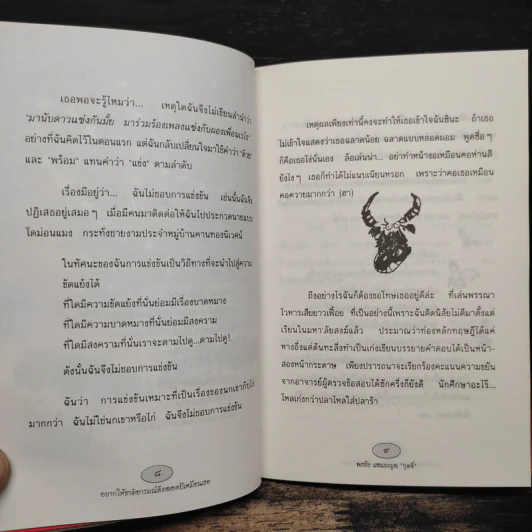 เธอพอจะรู้ไหมว่า... เหตุใดฉันจึงไม่เขียนลำนำว่า
"มานับดาวแข่งกันมั้ย มาร่วมร้องเพลงแข่งกับผองเพื่อนเรไร"
อย่างที่ฉันคิดไว้ในตอนแรก แต่ฉันกลับเปลี่ยนใจมาใช้คำว่า "ด้วย"
และ "พร้อม" แทนคำว่า "แข่ง" ตามลำดับ
เรื่องมีอยู่ว่า... ฉันไม่ชอบการแข่งขัน เช่นนั้นฉันจึง
ปฏิเสธอยู่เสมอๆ เมื่อมีคนมาติดต่อให้ฉันไปประกวดนายแบบ
โดม่อนแมง กระทั่งชายงามประจำหมู่บ้านคานทองนิเวศน์
ในทัศนะของฉันการแข่งขันเป็นวิถีทางที่จะนำไปสู่ความ
ขัดแย้งได้
ที่ใดมีความขัดแย้งที่นั่นย่อมมีเรื่องบาดหมาง
ที่ใดมีความบาดหมางที่นั่นย่อมมีสงคราม
ที่ใดมีสงครามที่นั่นเราจะตามไปดู...ตามไปดู!
ดังนั้นฉันจึงไม่ชอบการแข่งขัน
ฉันว่า การแข่งขันเหมาะที่เป็นเรื่องของนกเขากับไก่
มากกว่า ฉันไม่ใช่นกเขาหรือไก่ ฉันจึงไม่ชอบการแข่งขัน
๘
เหตุผลเพียงเท่านี้คงจะทำให้เธอเข้าใจฉันซินะ ถ้าเธอ
ไม่เข้าใจแสดงว่าเธอฉลาดน้อย ฉลาดแบบหลอดผอม พูดซื่อๆ
ก็คือเธอโง่นั่นเอง ล้อเล่นน่า... อย่าทำหน้างอเหมือนคอห่านสิ
ยังไงๆ เธอก็ทำได้ไม่แนบเนียนหรอก เพราะว่าคอเธอเหมือน
คอควายมากกว่า (ฮา)
ถึงอย่างไรฉันก็ต้องขอโทษเธออยู่ดีล่ะ ที่เล่นพรรณา
โวหารเสียยาวเฟื้อย ที่เป็นอย่างนี้เพราะฉันติดนิสัยไม่ดีมาตั้งแต่
เรียนในมหาลัยสงฆ์แล้ว ประมาณว่าท่องหลักทฤษฎีได้แค่
หางอึ่งแต่ดันทะลึ่งทำเป็นเก่งเขียนบรรยายคำตอบได้เป็นหน้า-
สองหน้ากระดาษ เพียงปรารถนาจะเรียกร้องคะแนนความขยัน
จากอาจารย์ผู้ตรวจข้อสอบได้ซักครึ่งก็ยังดี นักศึกษาอะไร้...
ไหลเก่งกว่าปลาไหลใส่ปลาร้า
๙